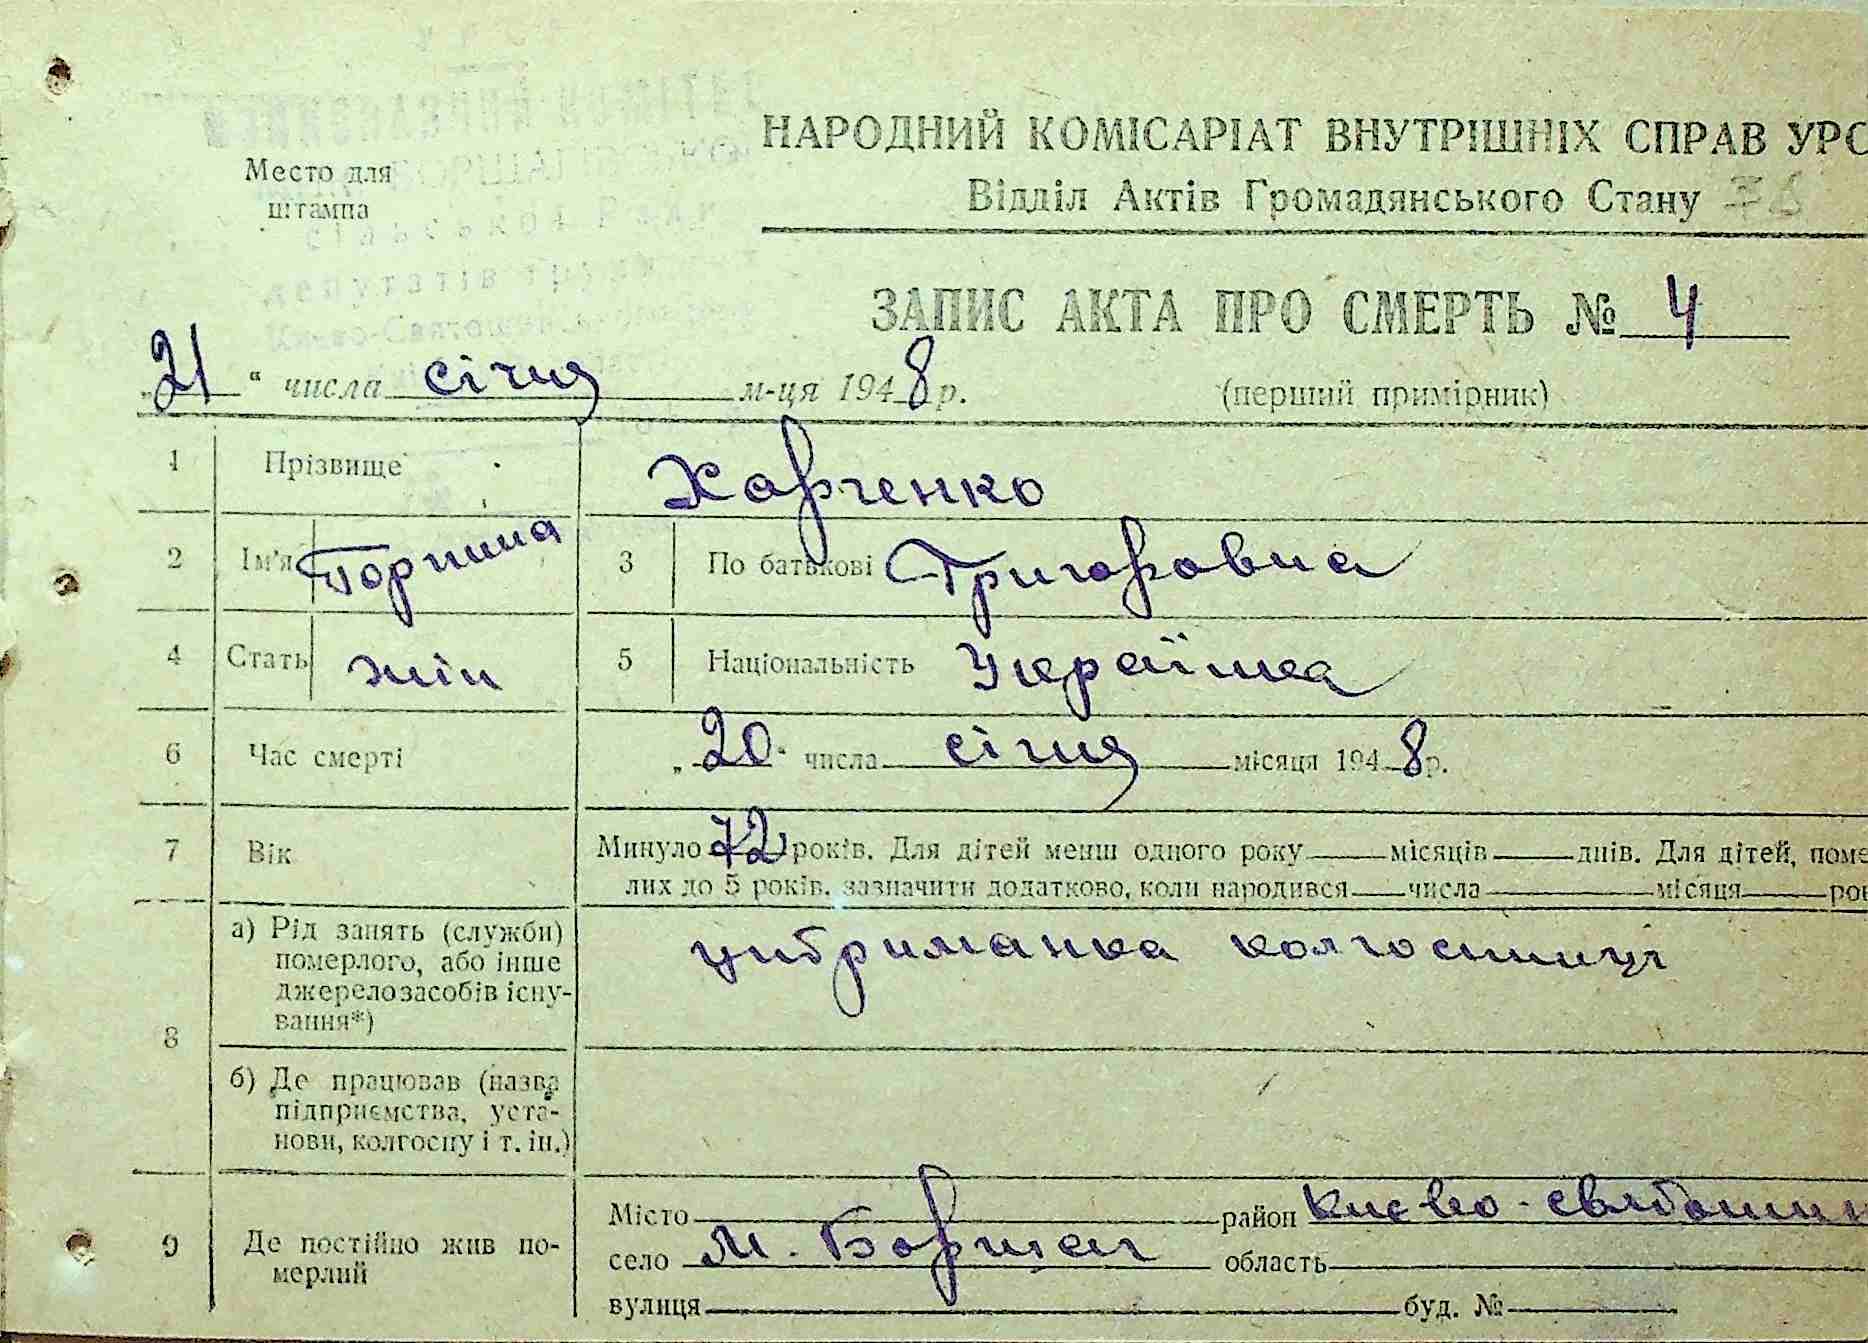 НАРОДНИЙ КОМІСАРІАТ ВНУТРІШНІХ СПРАВ УРС
Место для штампа
Відділ Актів Громадянського Стану
ЗАПИС АКТА ПРО СМЕРТЬ № 4
„21“ числа січня м-ця 1948 р.
(перший примірник)
1 Прізвище Харченко
2 Ім'я 3 По батькові Григоровна
4 Стать жін 5 Національність Українка
6 Час смерті „20“ числа січня місяця 1948 р.
7 Вік Минуло 72 років. Для дітей менш одного року місяців днів. Для дітей, поме
лих до 5 років, зазначити додатково, коли народився числа місяця рок
8 а) Рід занять (служби) померлого, або інше джерело засобів існування*) утриманка колгоспниці
б) Де працював (назва підприємства, установи, колгоспу і т. ін.)
9 Де постійно жив померлий
Місто район Києво-Святошин
село М. Борщаг область
вулиця буд. №